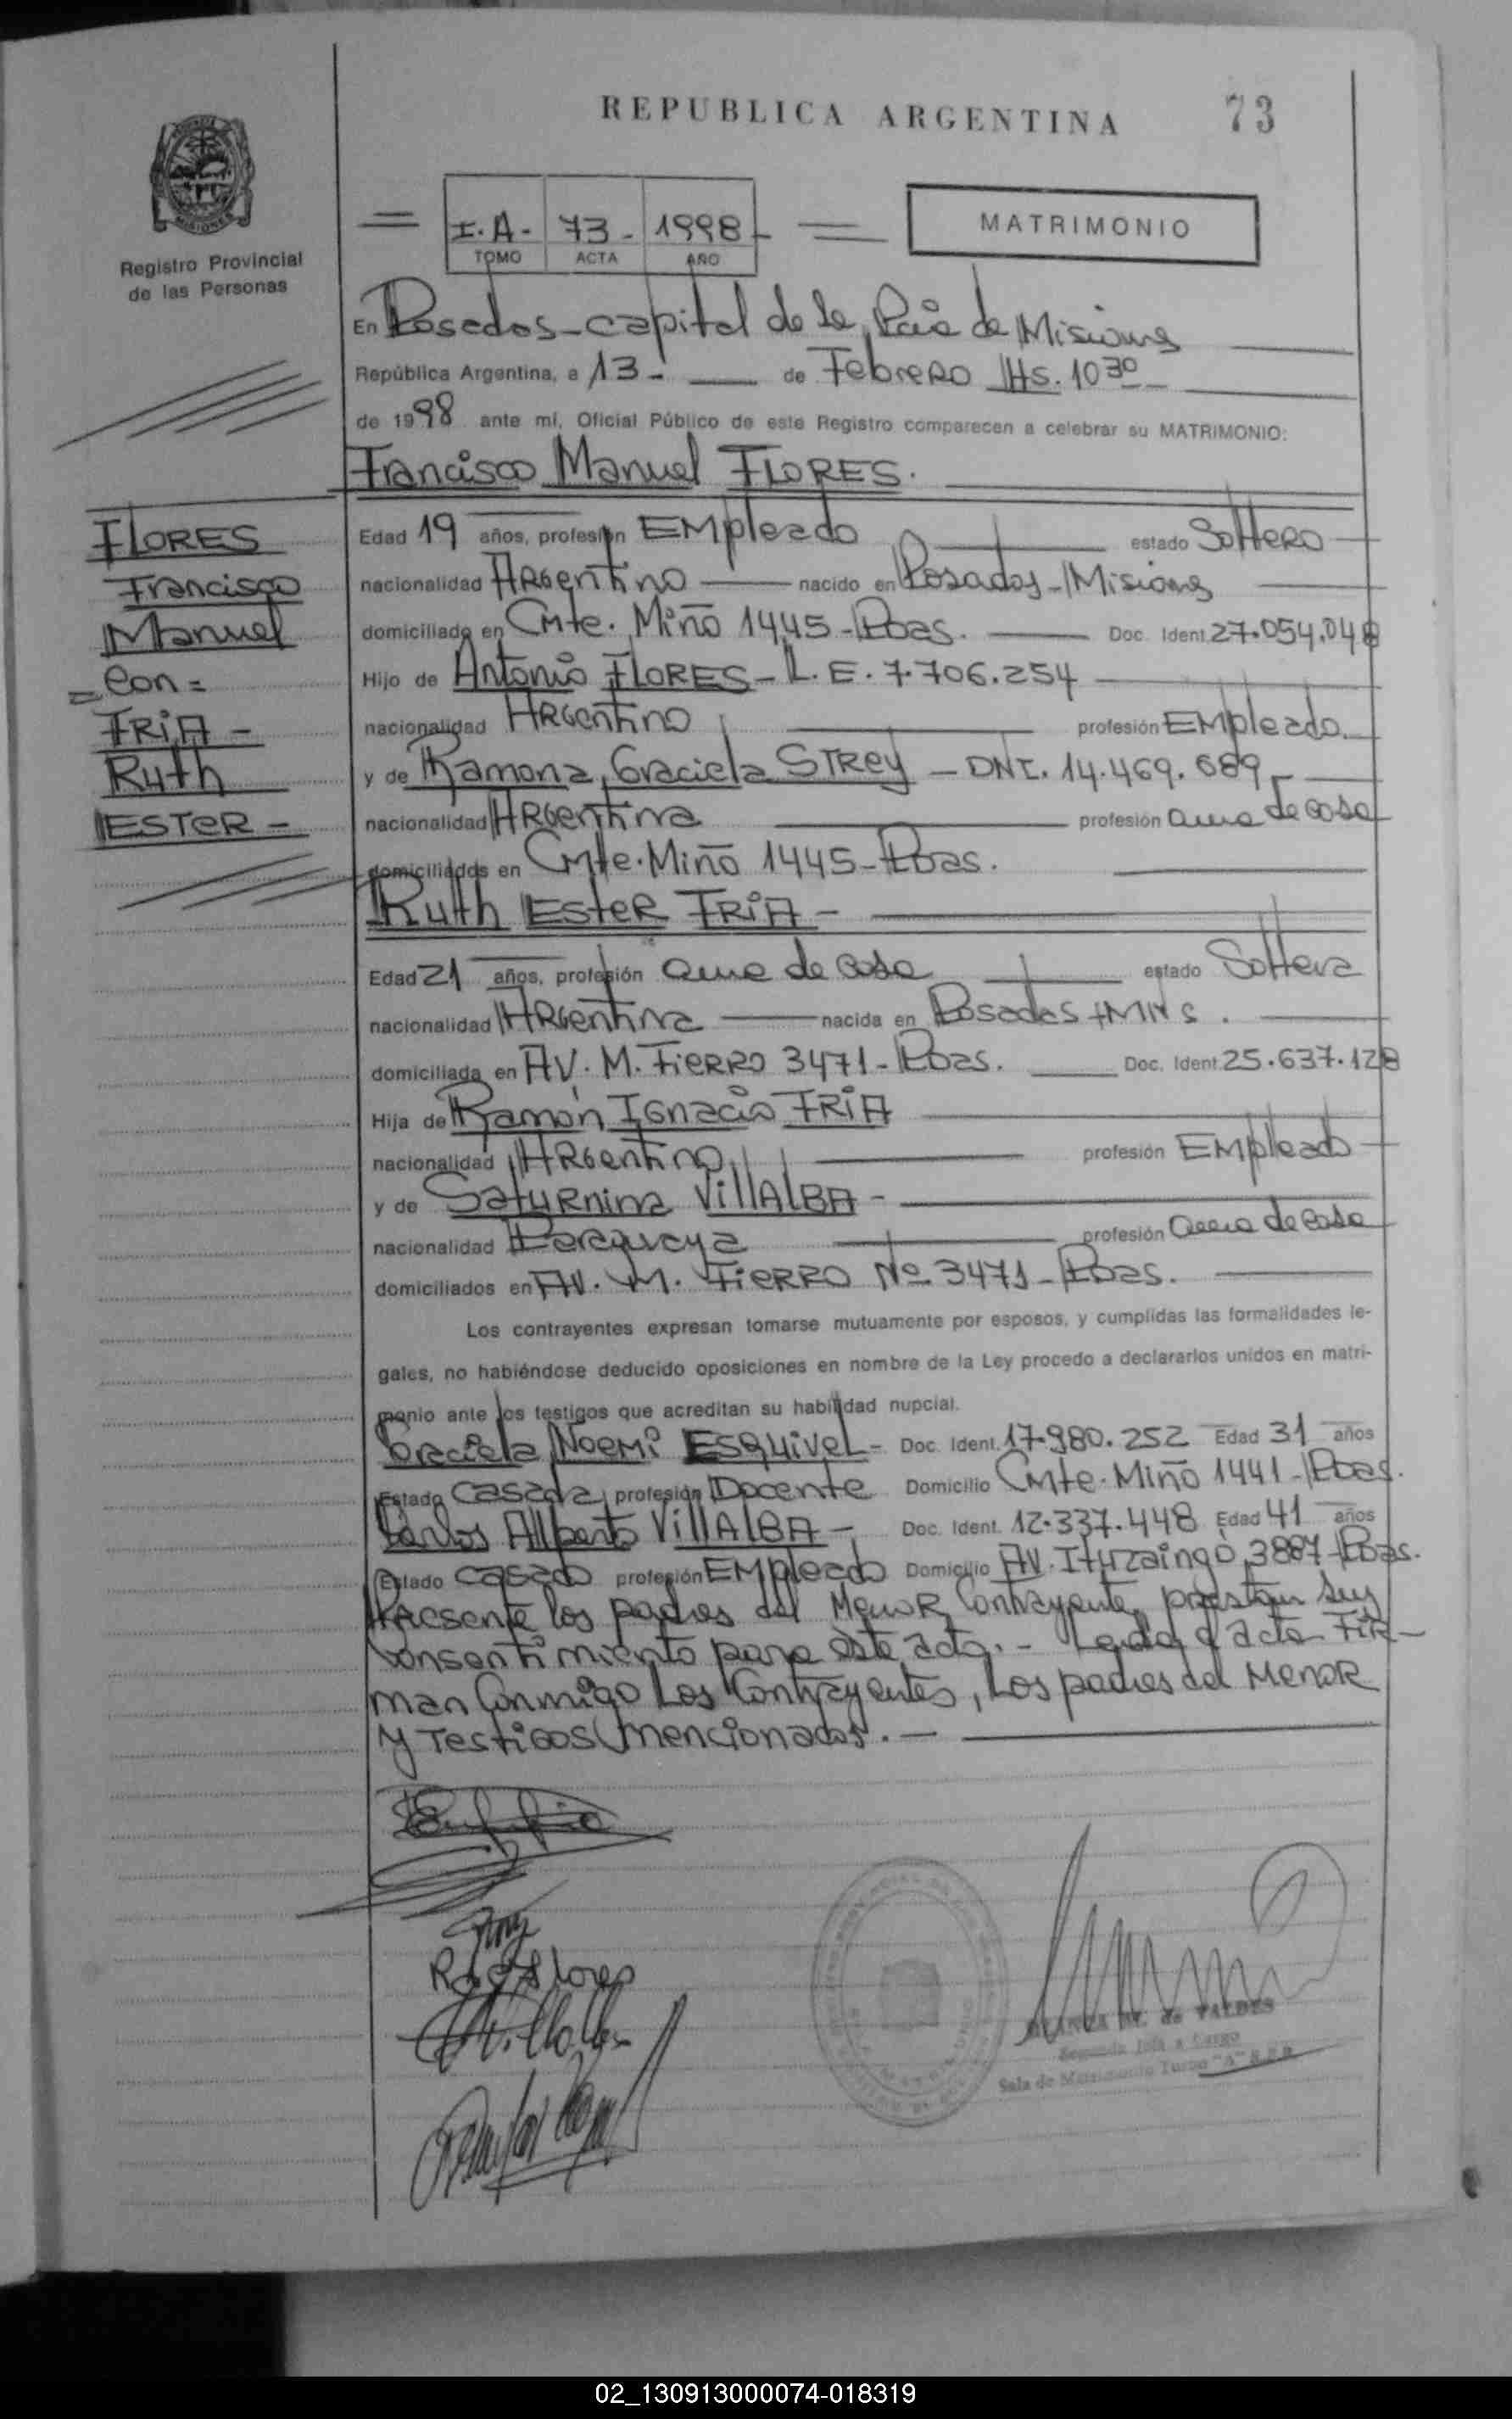 REPUBLICA ARGENTINA 73
I.A- 73- 1998-
TOMO ACTA AÑO
MATRIMONIO
MISIONES
Registro Provincial
de las Personas
En Posadas-capital de la Pcia de Misiones
República Argentina, a 13- de Febrero Hs. 10 30
de 1998 ante mí, Oficial Público de este Registro comparecen a celebrar su MATRIMONIO:
Francisco Manuel FLORES.
FLORES
Francisco
Manuel
= con =
FRIA -
Ruth
ESTER -
Edad 19 años, profesión Empleado estado Soltero
nacionalidad Argentino nacido en Posadas-Misiones
domiciliado en Cmte. Miño 1445-Pdas. Doc. Ident. 27.054.048
Hijo de Antonio FLORES- L.E. 7.706.254
nacionalidad Argentino profesión Empleado.
y de Ramona Graciela STREY - DNI. 14.469.689
nacionalidad Argentina profesión ama de casa
domiciliados en Cmte. Miño 1445-Pdas.
Ruth ESTER FRIA -
Edad 21 años, profesión ama de casa estado Soltera
nacionalidad Argentina nacida en Posadas-Mnes.
domiciliada en AV. M. FIERRO 3471-Pdas. Doc. Ident. 25.637.128
Hija de Ramón Ignacio FRIA
nacionalidad Argentino profesión Empleado
y de Saturnina VillALBA -
nacionalidad Paraguaya profesión ama de casa
domiciliados en AV. M. FIERRO Nº 3471-Pdas.
Los contrayentes expresan tomarse mutuamente por esposos, y cumplidas las formalidades le-
gales, no habiéndose deducido oposiciones en nombre de la Ley procedo a declararlos unidos en matri-
monio ante los testigos que acreditan su habilidad nupcial.
Graciela Noemi ESQUIVEL- Doc. Ident. 17.980.252 Edad 31 años
Estado casada profesión Docente Domicilio Cmte. Miño 1441-Pdas.
Carlos Alberto VillALBA - Doc. Ident. 12.337.448 Edad 41 años
Estado casado profesión Empleado Domicilio AV. Ituzaingó 3887-Pdas.
Presente los padres del Menor Contrayente, prestan sus
consentimiento para este acto.- Leida el acta Fir-
man Conmigo Los Contrayentes, Los padres del Menor
y Testigos mencionados.-
R. G. S. de Flores
BLANCA M. de VALDES
Segunda Jefa a Cargo
Sala de Matrimonio Turno "A" R.P.P.
02_130913000074-018319